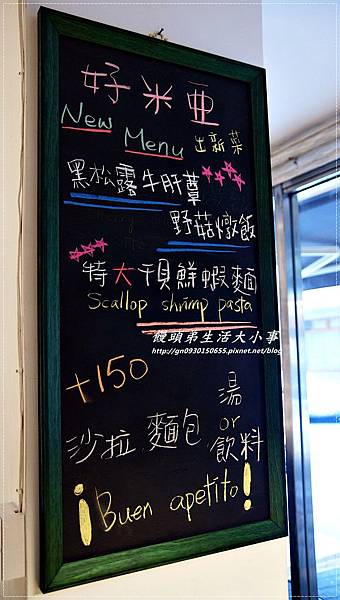 好米亜
New Menu 出新菜
黑松露牛肝蕈
野菇燉飯
特大干貝鮮蝦麵
Scallop shrimp pasta
饅頭弟生活大小事
http://gn0930150655.pixnet.net/blog
+150
沙拉, 麵包, 湯 or 飲料
¡Buen apetito!